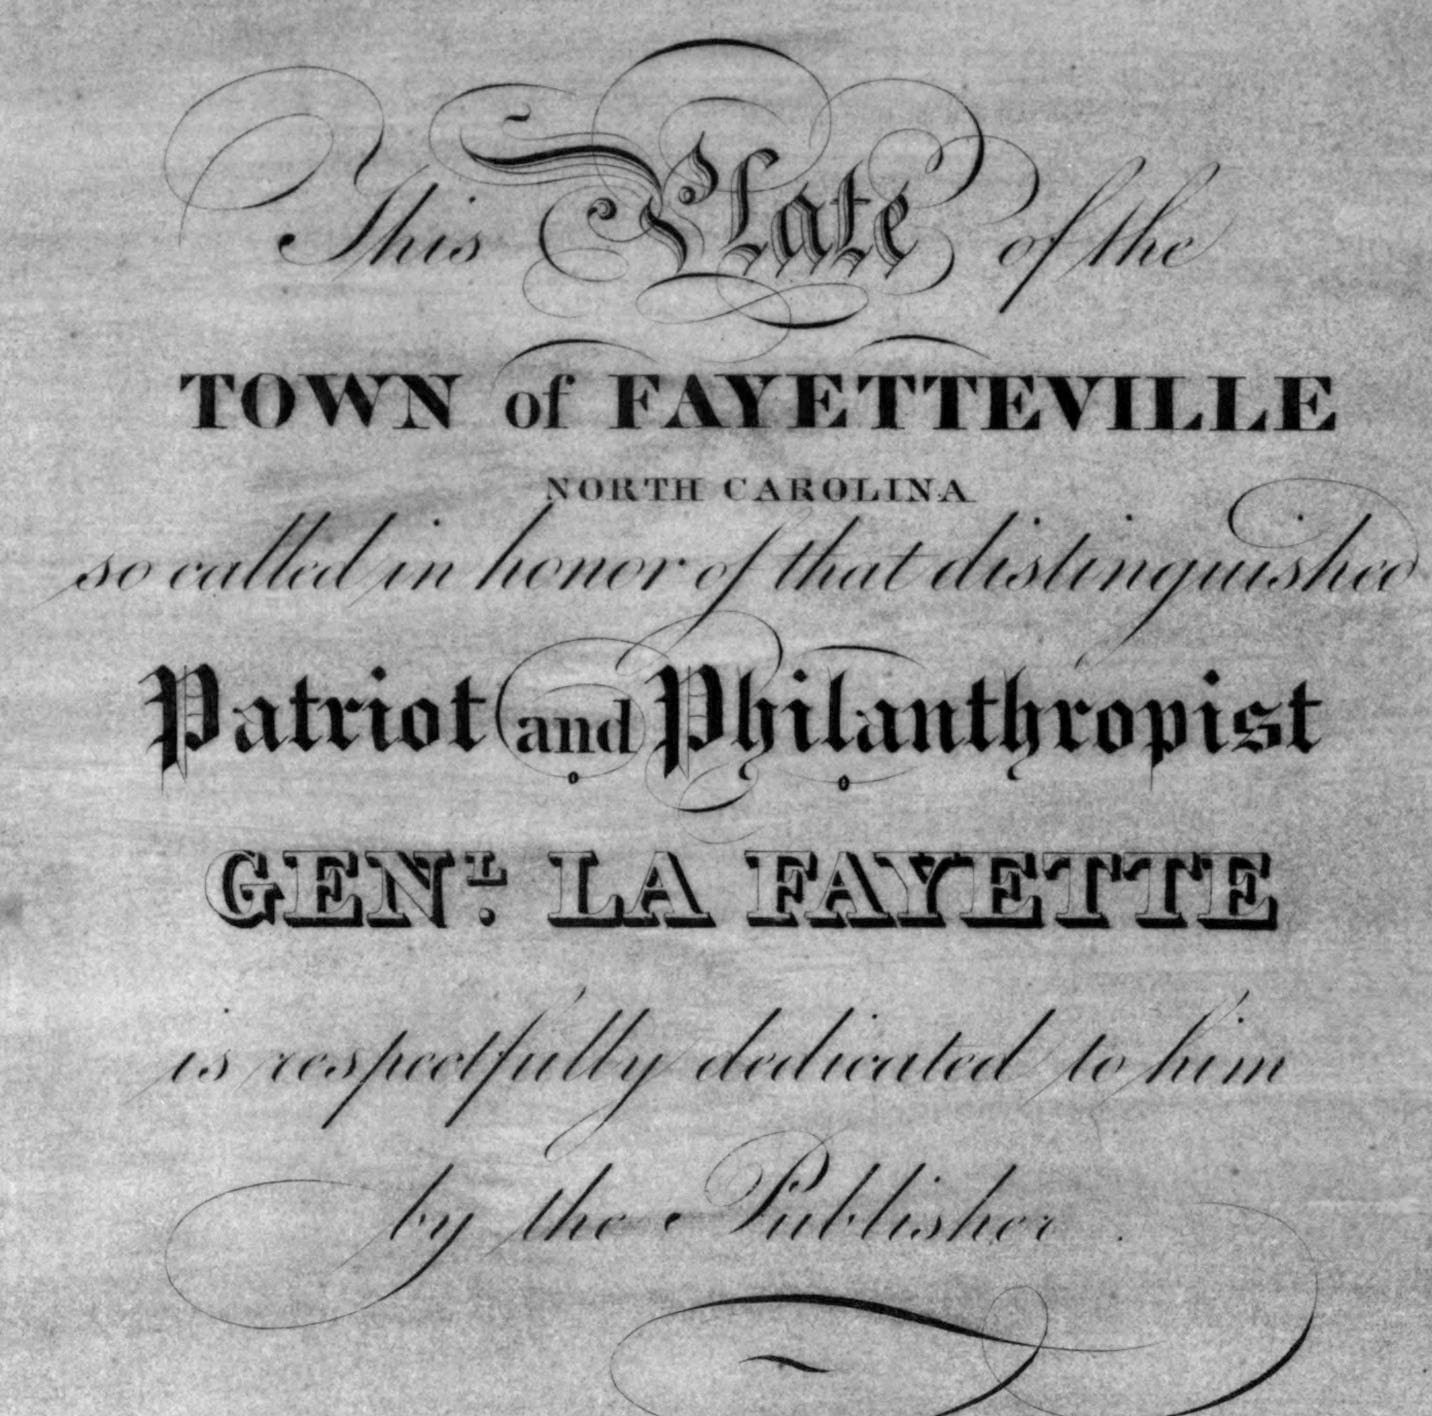 This Plate of the
TOWN of FAYETTEVILLE
NORTH CAROLINA
so called in honor of that distinguished
Patriot and Philanthropist
GENL. LA FAYETTE
is respectfully dedicated to him
by the Publisher.